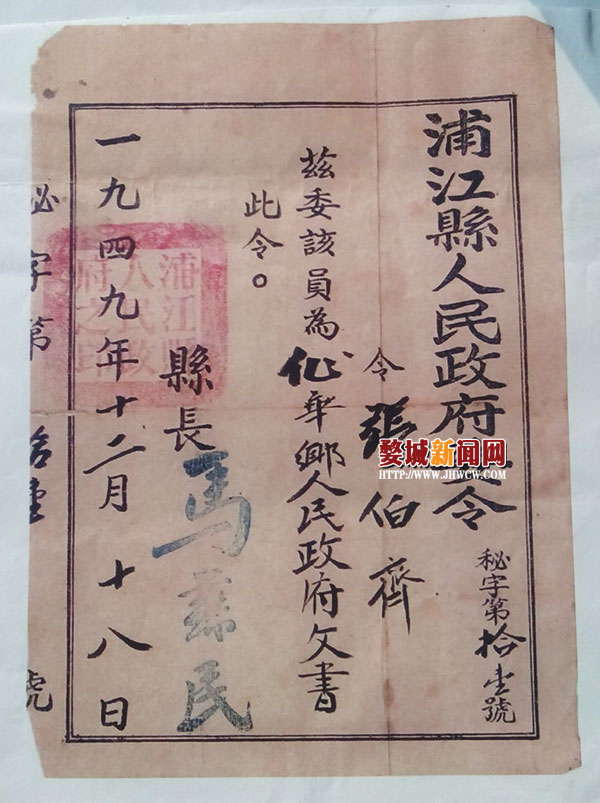 浦江縣人民政府委令
秘字第拾壹號
令張伯齊
茲委該員為仙華鄉人民政府文書
此令。
縣長馬蘇民
一九四九年十二月十八日
浦江縣
人民政
府之印
秘字第拾壹號
婺城新闻网
HTTP://WWW.JHWCW.COM